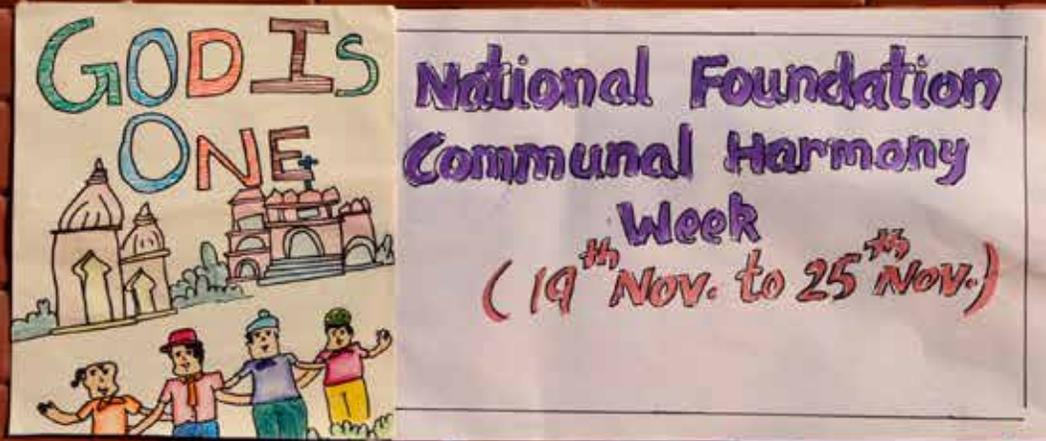 GOD IS
ONE
National Foundation
Communal Harmony
Week
(19th Nov. to 25th Nov.)